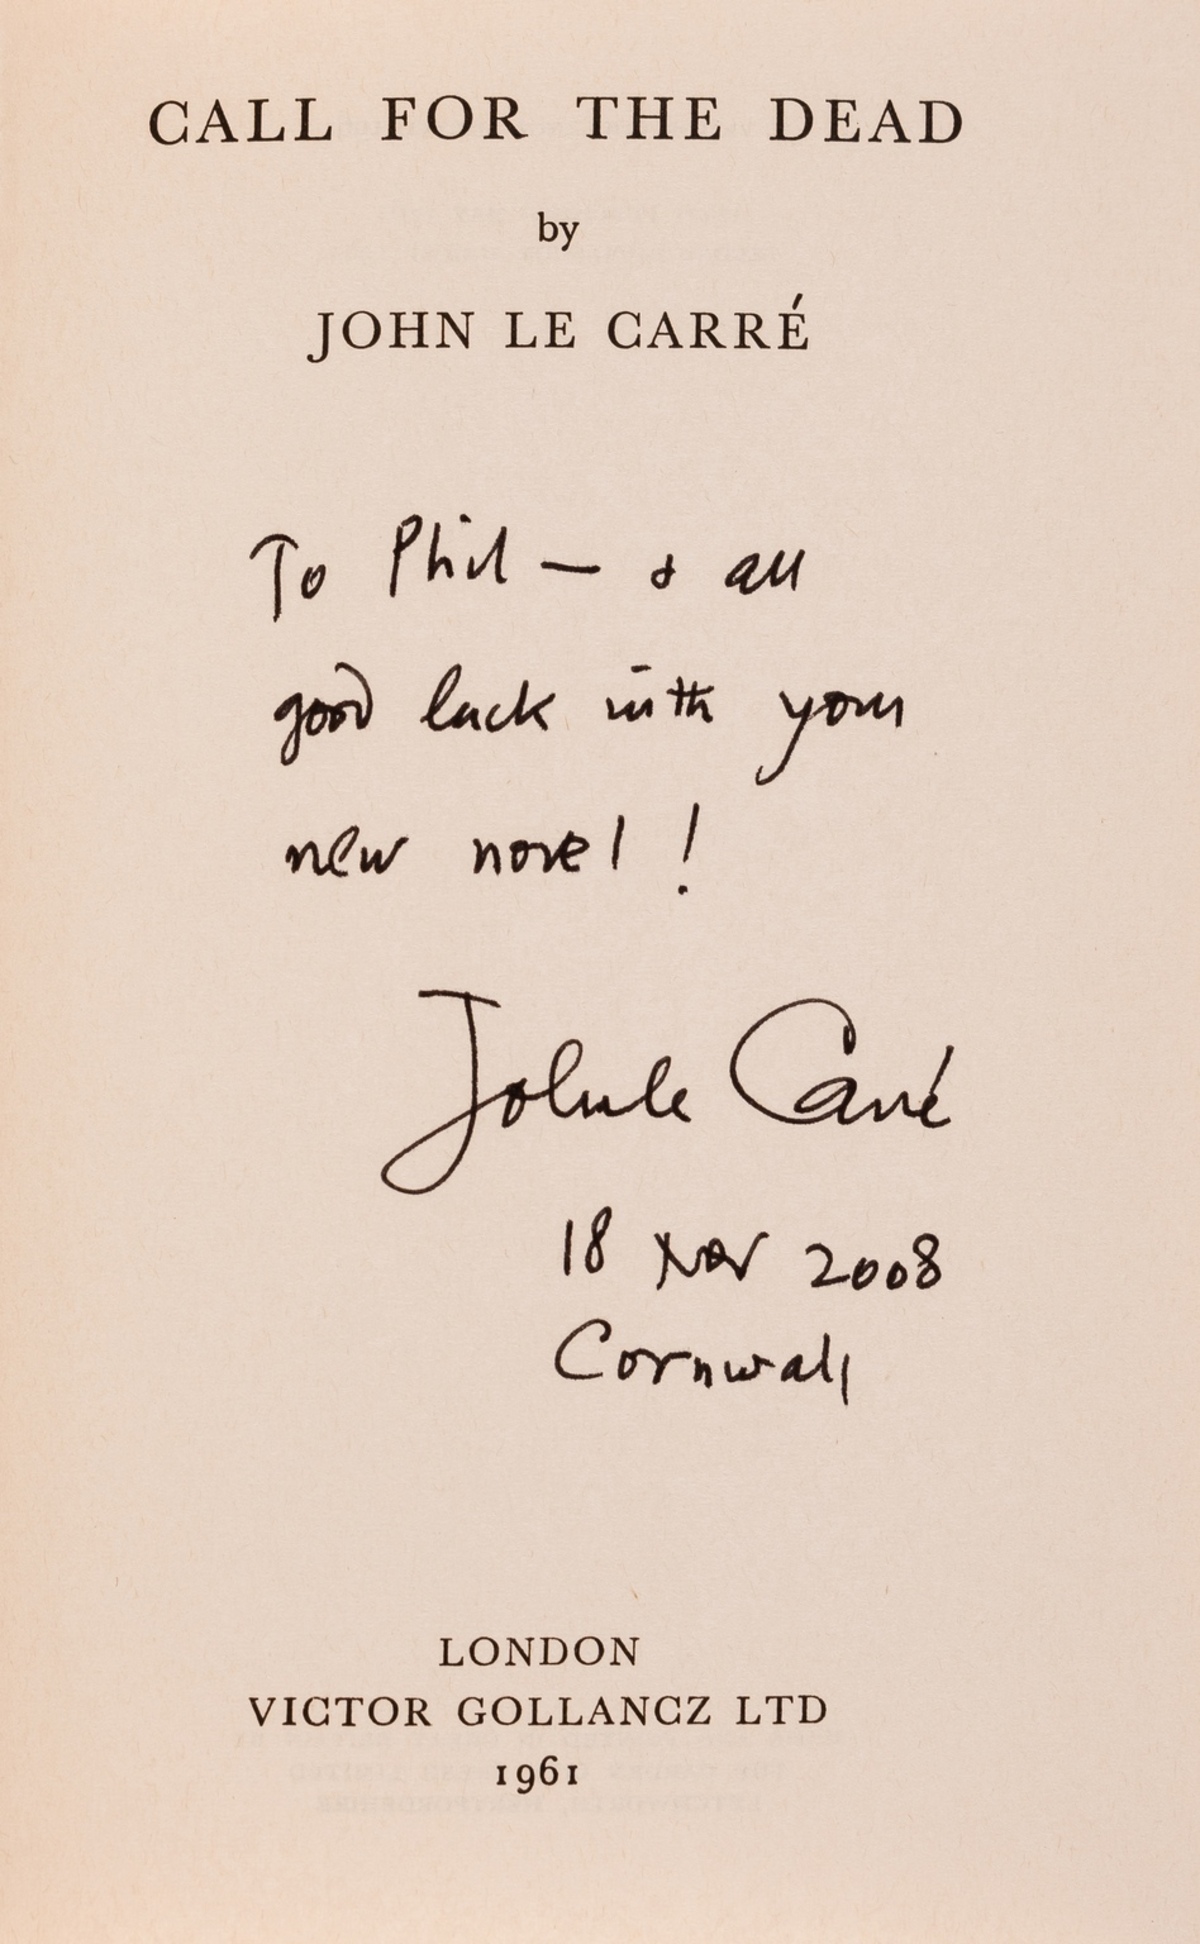 CALL FOR THE DEAD
by
JOHN LE CARRÉ
To Phil — & all
good luck with your
new novel !
John le Carré
18 Nov 2008
Cornwall
LONDON
VICTOR GOLLANCZ LTD
1961